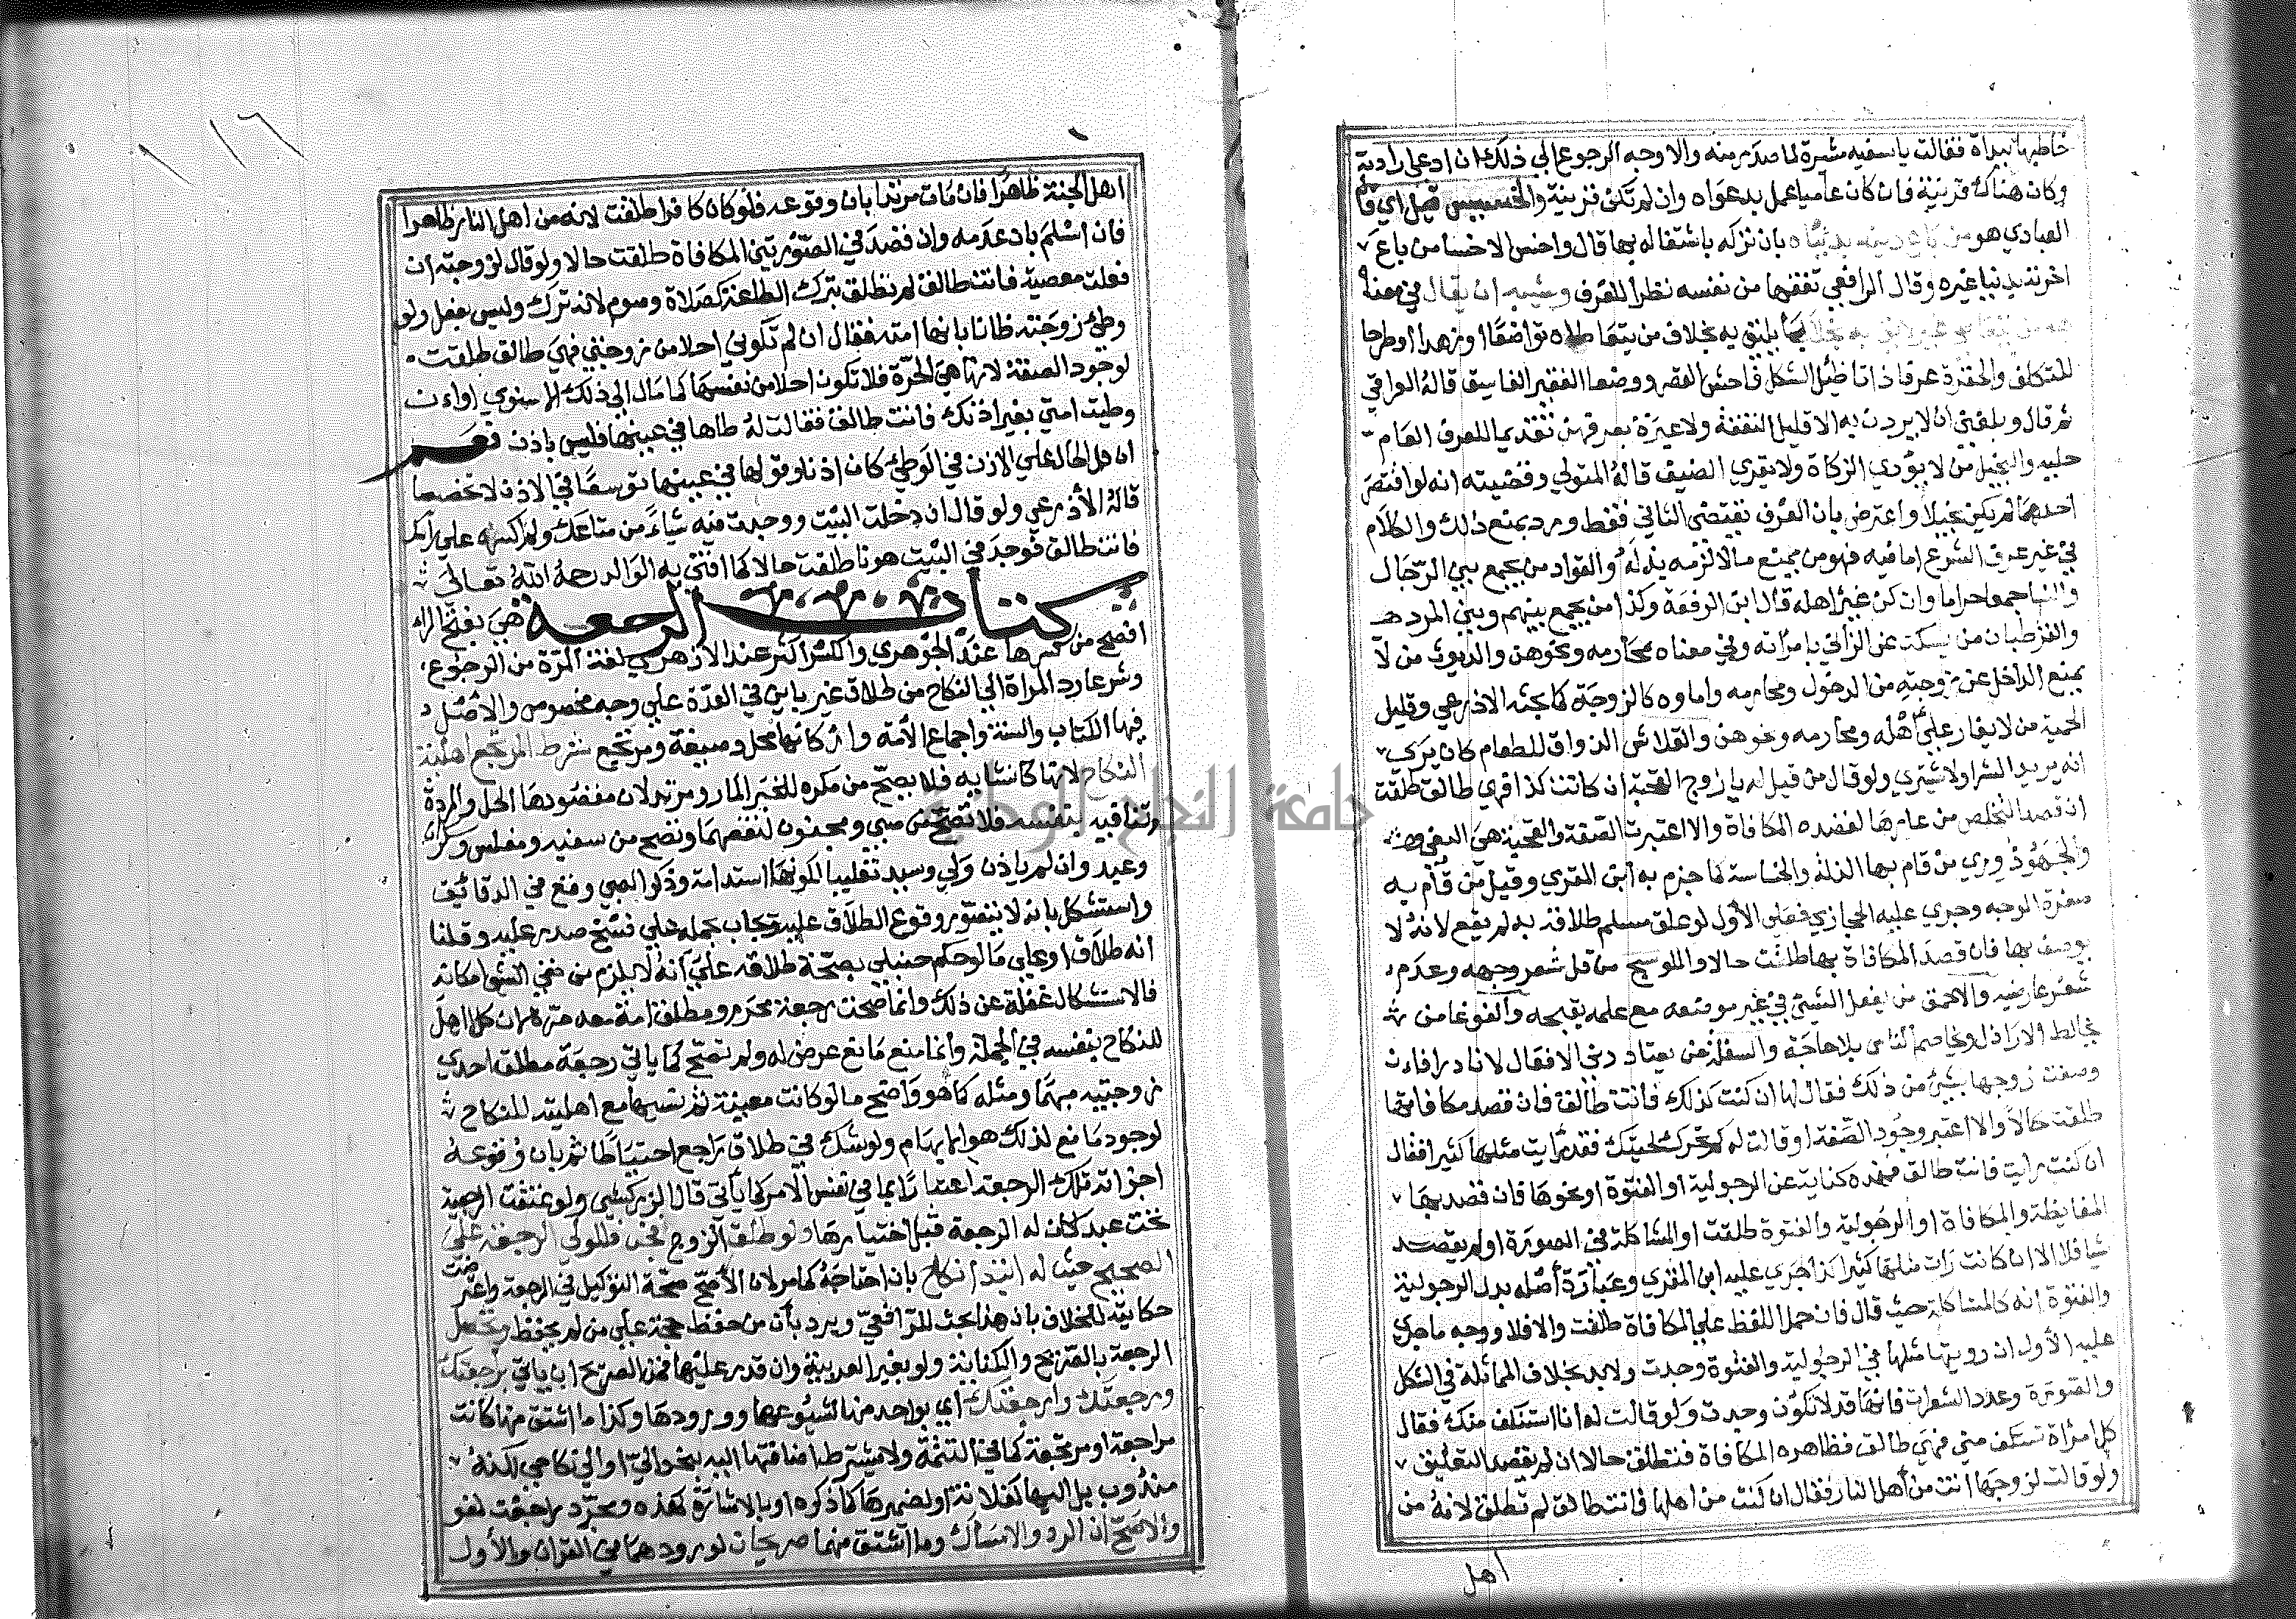 خاطبها نبداة فقالت يا سفيه مشيرة لما صدر منه والاوجه الرجوع الي ذلك ان ادعي ارادته
وكان هناك قرينة فان كان عاميا عمل بدعواه وان لم تكن قرينة والخسيس قيل اي قاله
العبادي هو من باع دينه بدنياه بان تركه باشتغاله بها قال واخس الاخسا من باع
اخرته بدنيا غيره وقال الرافعي تفقها من نفسه نظرا للعرف ويشبه ان يقال في معناه
بخلا بما يليق به بخلاف من يتعاطاه تواضعا او زهدا او طرحا
للتكلف والحقرة عرفا ذاتا ضئيل الشكل فاحش القصر ووضعا الفقير الفاسق قاله العراقي
ثم قال وبلغني ان لا يردن به الا قليل النفقة ولا عبرة بعرفهن تقديما للعرف العام
عليه والبخيل من لا يؤدي الزكاة ولا يقري الضيف قاله المتولي وقضيته انه لو اقتصر
احدهما لم يكن بخيلا واعترض بان العرف يقتضي الثاني فقط ويرد بمنع ذلك والكلام
في غير عرف الشرع اما فيه فهو من يمنع مالا لزمه بذله والقواد من يجمع بين الرجال
والنسا جمعا حراما وان كن غير اهله قال ابن الرفعة وكذا من يجمع بينهم وبين المرد
والقرطبان من يسكت عن الزاني بامراته وفي معناه محارمه ونحوهن والديوث من لا
يمنع الداخل عن زوجته من الدخول ومحارمه واماوه كالزوجة كما بحثه الاذرعي وقليل
الحمية من لا يغار علي اهله ومحارمه ونحوهن والقلاش الذواق للطعام كان يري
انه يريد الشرا ولا يشتري ولو قال من قيل له يا زوج القحبة ان كانت كذا فهي طالق طلقت
ان قصد التخلص من عارها لقصده المكافاة والا اعتبرت الصفة والقحبة هي البغي
والجهوذوري من قام بها الذلة والخساسة كما جزم به ابن المقري وقيل من قام به
صفرة الوجه وجري عليه الحجازي فعلي الاول لو علق مسلم طلاقه به لم يقع لانه لا
يوصف بها فان قصد المكافاة بها طلقت حالا والكوسج من قل شعر وجهه وعدم
شعر عارضيه والاحمق من يفعل الشيئ في غير موضعه مع علمه بقبحه والغوغا من
يخالط الاراذل ويخاصم الناس بلا حاجة والسفلة من يعتاد دني الافعال لا نادرا فان
وصفت زوجها بشيئ من ذلك فقال لها ان كنت كذلك فانت طالق فان قصد مكافاتها
طلقت حالا والا اعتبر وجود الصفة او قالت له كم تحرك لحيتك فقد رايت مثلها كثيرا فقال
ان كنت رايت فانت طالق فهذه كناية عن الرجولية او الفتوة او نحوها فان قصد بها
المغايظة والمكافاة او الرجولية والفتوة طلقت او المشاكلة في الصورة او لم يقصد
شيا فلا الا ان كانت رات مثلها كثيرا كذا جري عليه ابن المقري وعبارة اصله بدل الرجولية
والفتوة انه كالمشاكلة حيث قال فان حمل اللفظ علي المكافاة طلقت والا فلا ووجه ما جري
عليه الاول ان رويتها مثلها في الرجولية والفتوة وجدت ولابد بخلاف المماثلة في الشكل
والصورة وعدد الشعرات فانها قد لا تكون وجدت ولو قالت له انا استنكف منك فقال
كل امراة تستنكف مني فهي طالق فظاهره المكافاة فتطلق حالا ان لم يقصد التعليق
ولو قالت لزوجها انت من اهل النار فقال ان كنت من اهلها فانت طالق لم تطلق لانه من
اهل
١١٦
اهل الجنة ظاهرا فان مات مرتدا بان وقوعه فلو كان كافرا طلقت لانه من اهل النار ظاهرا
فان اسلم بان عدمه وان قصد في الصورتين المكافاة طلقت حالا ولو قال لزوجته ان
فعلت معصية فانت طالق لم تطلق بترك الطاعة كصلاة وصوم لانه ترك وليس بفعل ولو
وطئ زوجته ظانا بانها امته فقال ان لم تكوني احلا من زوجتي فهي طالق طلقت
لوجود الصفة لانها هي الحرة فلا تكون احلا من نفسها كما مال الي ذلك الاسنوي او ان
وطيت امتي بغير اذنك فانت طالق فقالت له طاها في عينها فليس باذن نعم
ان دل الحال علي الاذن في الوطئ كان اذنا وقولها في عينها توسعا في الاذن لا تخصصا
قاله الاذرعي ولو قال ان دخلت البيت ووجدت فيه شياء من متاعك ولم اكسره علي راسك
فانت طالق فوجد في البيت هونا طلقت حالا كما افتي به الوالد رحمه الله تعالي
كتاب الرجعة هي بفتح الراء
افصح من كسرها عند الجوهري والكسر اكثر عند الازهري لغة المرة من الرجوع
وشرعا رد المراة الي النكاح من طلاق غير باين في العدة علي وجه مخصوص والاصل
فيها الكتاب والسنة واجماع الامة واركانها محل وصيغة ومرتجع شرط المرتجع اهلية
النكاح لانها كانشايه فلا يصح من مكره للخبر المار ومرتد لان مقصودها الحل والردة
تنافيه بنفسه فلا تصح من صبي ومجنون لنقصهما وتصح من سفيه ومفلس وسكران
وعبد وان لم ياذن ولي وسيد تغليبا لكونها استدامة وذكر الصبي وقع في الدقائق
واستشكل بانه لا يتصور وقوع الطلاق عليه ويجاب بحمله علي فسخ صدر عليه وقلنا
انه طلاق او علي ما لو حكم حنبلي بصحة طلاقه علي انه لا يلزم من نفي الشئ امكانه
فالاستشكال غفلة عن ذلك وانما صحت رجعة محرم ومطلق امة معه حرة لان كلا اهل
للنكاح بنفسه في الجملة وانما منع مانع عرض له ولم تصح كما ياتي رجعة مطلق احدي
زوجتيه مبهما ومثله كما هو واضح ما لو كانت معينة ثم نسيها مع اهليته للنكاح
لوجود مانع لذلك هو الابهام ولو شك في طلاق راجع احتياطا ثم بان وقوعه
اجزاته تلك الرجعة اعتبارا بما في نفس الامر كما ياتي قال الزركشي ولو عتقت الرجعية
تحت عبد كان له الرجعة قبل اختيارها ولو طلق الزوج فجن فللولي الرجعة علي
الصحيح حيث له ابتدا نكاح بان احتاجه كما مر لان الاصح صحة التوكيل في الرجعة واعترضت
حكاية للخلاف بان هذا بحث للرافعي ويرد بان من حفظ حجة علي من لم يحفظ وتحصل
الرجعة بالصريح والكناية ولو بغير العربية وان قدر عليها فمن الصريح ان ياتي براجعتك
ورجعتك وارتجعتك اي بواحد منها لشيوعها وورودها وكذا ما اشتق منها كانت
مراجعة او مرتجعة كما في التتمة ولا يشترط اضافتها اليه بنحو الي او الي نكاحي لكنه
مندوب بل اليها كفلانة او لضميرها كما ذكره او بالاشارة كهذه ومجرد راجعت لغو
والاصح ان الرد والامساك وما اشتق منهما صريحان لورودهما في القران والاول
جامعة النجاح الوطنية